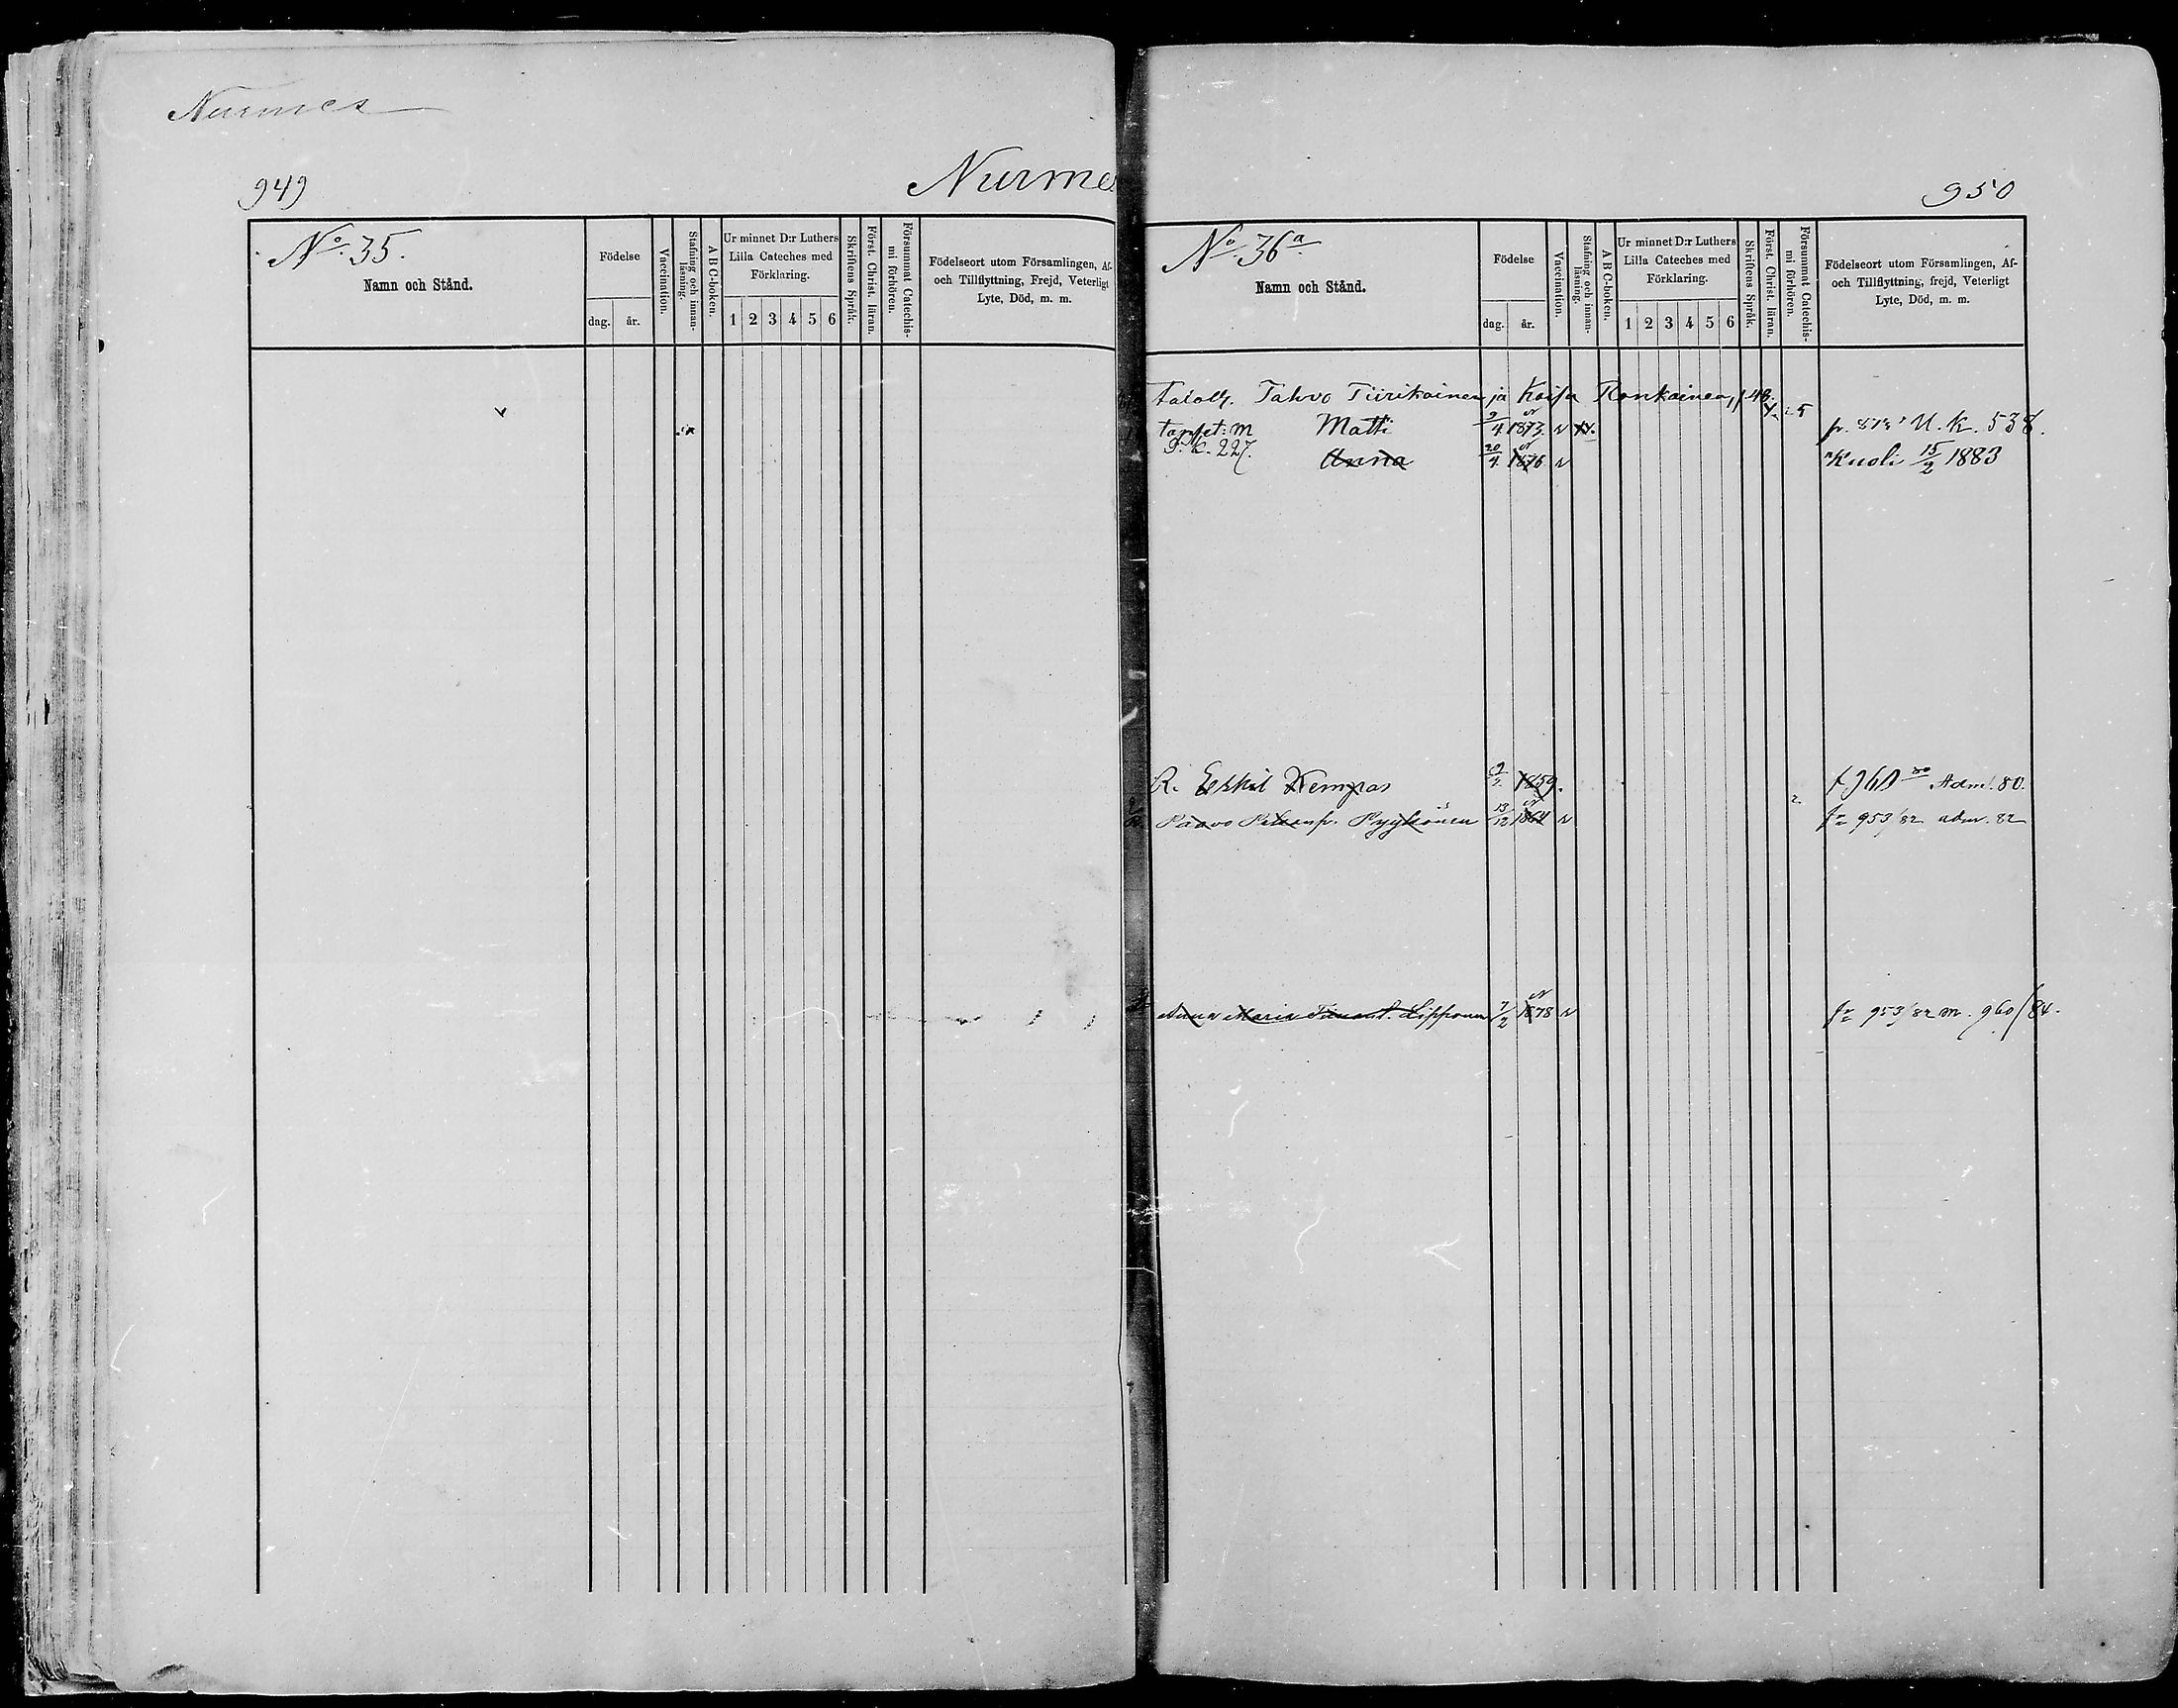 Nurmes
949
Nurme
No. 35.
Namn och Stånd.
Födelse
dag. år.
Vaccination.
Stafning och innan-läsning.
A B C-boken.
Ur minnet D:r Luthers
Lilla Cateches med
Förklaring.
1 2 3 4 5 6
Skriftens Språk.
Först. Christ. läran.
Försummat Catechis-
mi förhören.
Födelseort utom Församlingen, Af-
och Tillflyttning, Frejd, Veterligt
Lyte, Död, m. m.
950
No. 36a
Namn och Stånd.
Födelse
dag. år.
Vaccination.
Stafning och innan-läsning.
A B C-boken.
Ur minnet D:r Luthers
Lilla Cateches med
Förklaring.
1 2 3 4 5 6
Skriftens Språk.
Först. Christ. läran.
Försummat Catechis-
mi förhören.
Födelseort utom Församlingen, Af-
och Tillflyttning, frejd, Veterligt
Lyte, Död, m. m.
Tahvo Tiirikainen ja Kaisa Ronkainen, 
Matti 9/4 1873. U. K. 538.
227.
Anna 20/4 1876 Kuoli 15/2 1883
R. Eskil Kempas 1859. Adm. 80.
Paavo Pyykönen 13/12 1864 953/82 adm. 82
Anna Maria Lipponen 7/2 1878 953/82 m. 960/84.